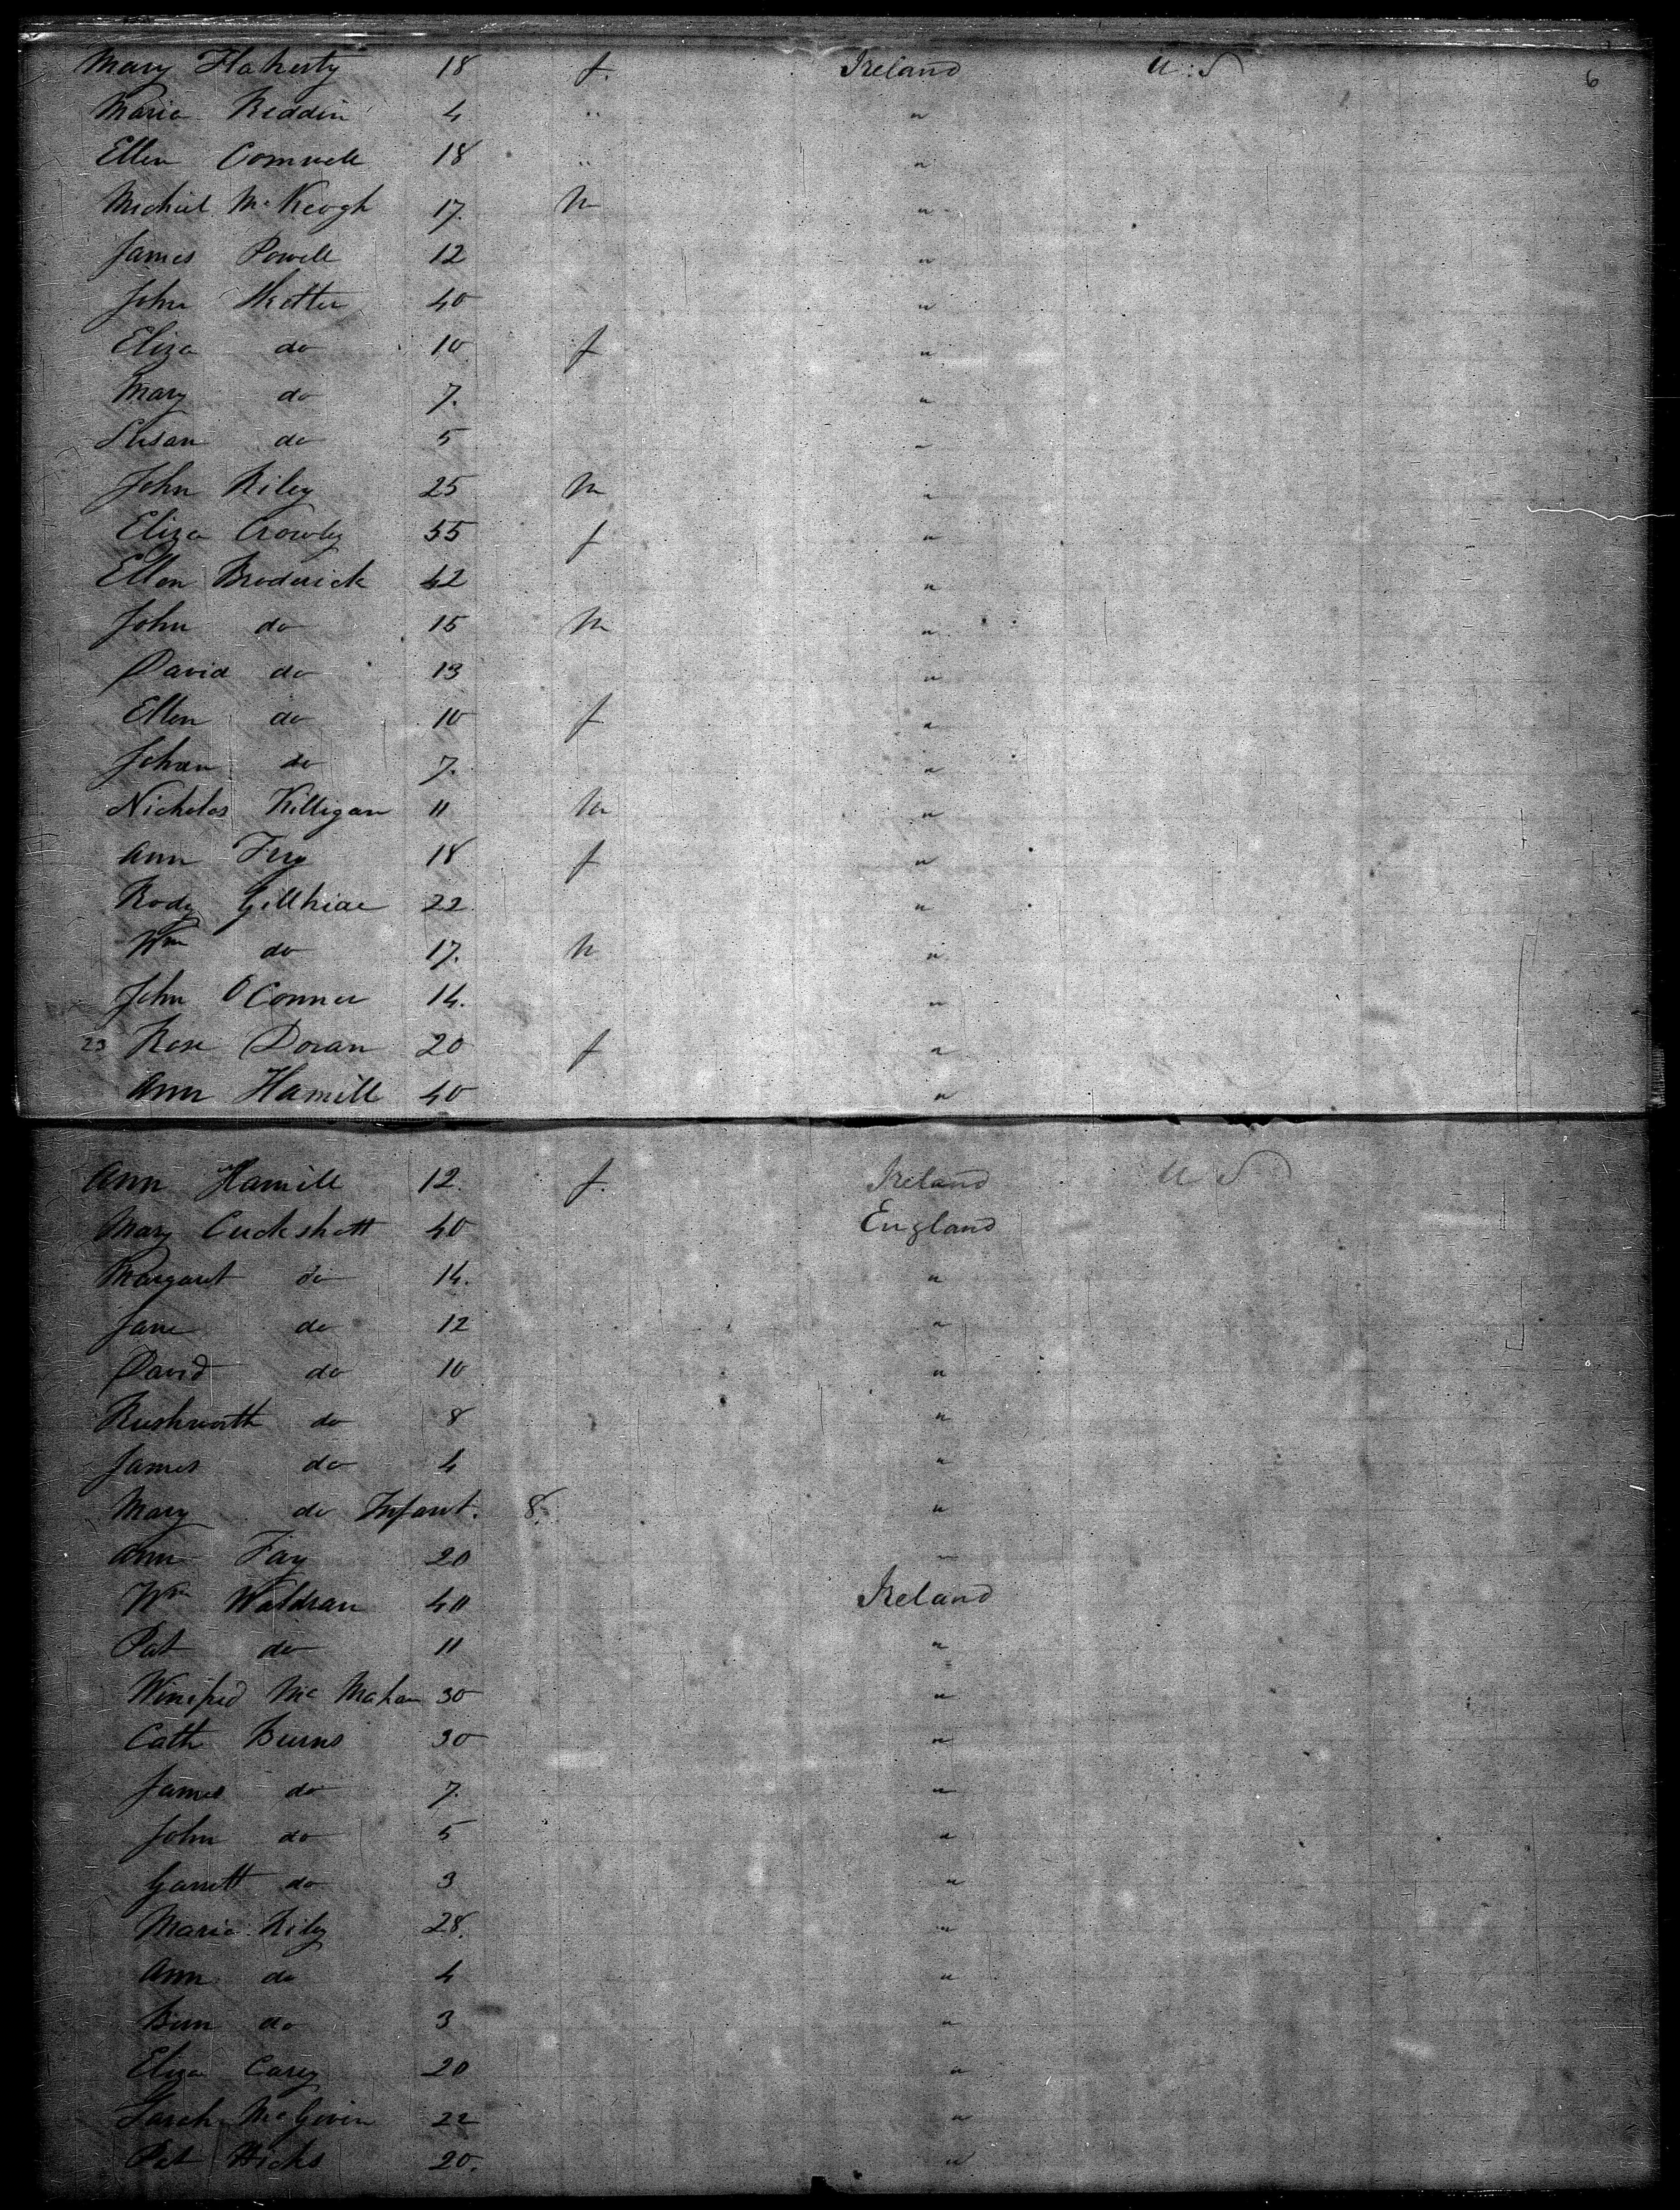 Mary Flaherty 18 f. Ireland U.S 6
Maria Reddin 4 " "
Ellen 18 " "
Michiel McKeogh 17. M "
James Powell 12 "
John 40 "
Eliza do 10 f "
Mary do 7. "
Susan do 5 "
John Riley 25 M "
Eliza Crowley 55 f "
Ellen Broderick 42 "
John do 15 M "
David do 13 "
Ellen do 10 f "
Johan do 7. "
Nicholas Killigan 11 M "
Ann 18 f "
Rody 22 "
Wm do 17. M "
John O'Conner 14. "
23 Rose Doran 20 f "
Ann Hamill 40 "
Ann Hamill 12. f. Ireland U S
Mary Cuckshott 40 England
Margaret do 14. "
Jane do 12 "
David do 10 "
Rushworth do 8 "
James do 4 "
Mary do Infant. 8. "
Ann Fay 20 "
Wm Waldran 40 Ireland
Pat do 11 "
Winifred McMahan 30 "
Cath Burns 30 "
James do 7. "
John do 5 "
Garrett do 3 "
Maria Riley 28. "
Ann do 4 "
do 3 "
Eliza Carey 20 "
Sarah McGovin 22 "
Pat Hicks 20. "